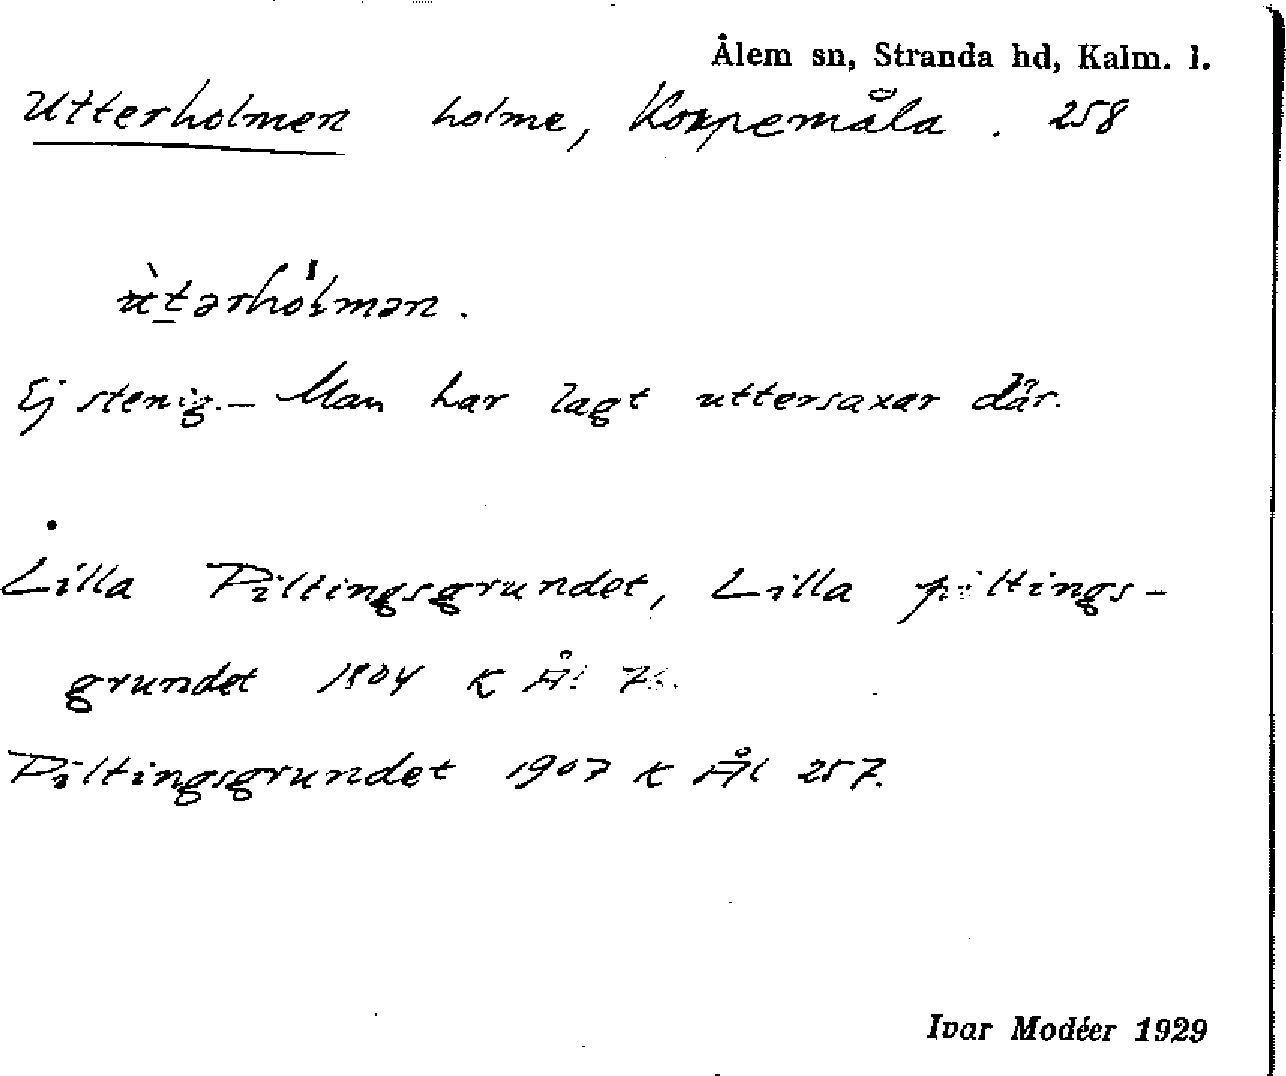 Ålem sn, Stranda hd, Kalm. l.
Utterholmen holme, Korpemåla. 258
ùtərhólmən.
Ej stenig. – Man har lagt uttersaxar där.
Lilla Piltingsgrundet, Lilla piltings-
grundet 1804 K Ål
Piltingsgrundet 1907 K Ål 257.
Ivar Modéer 1929